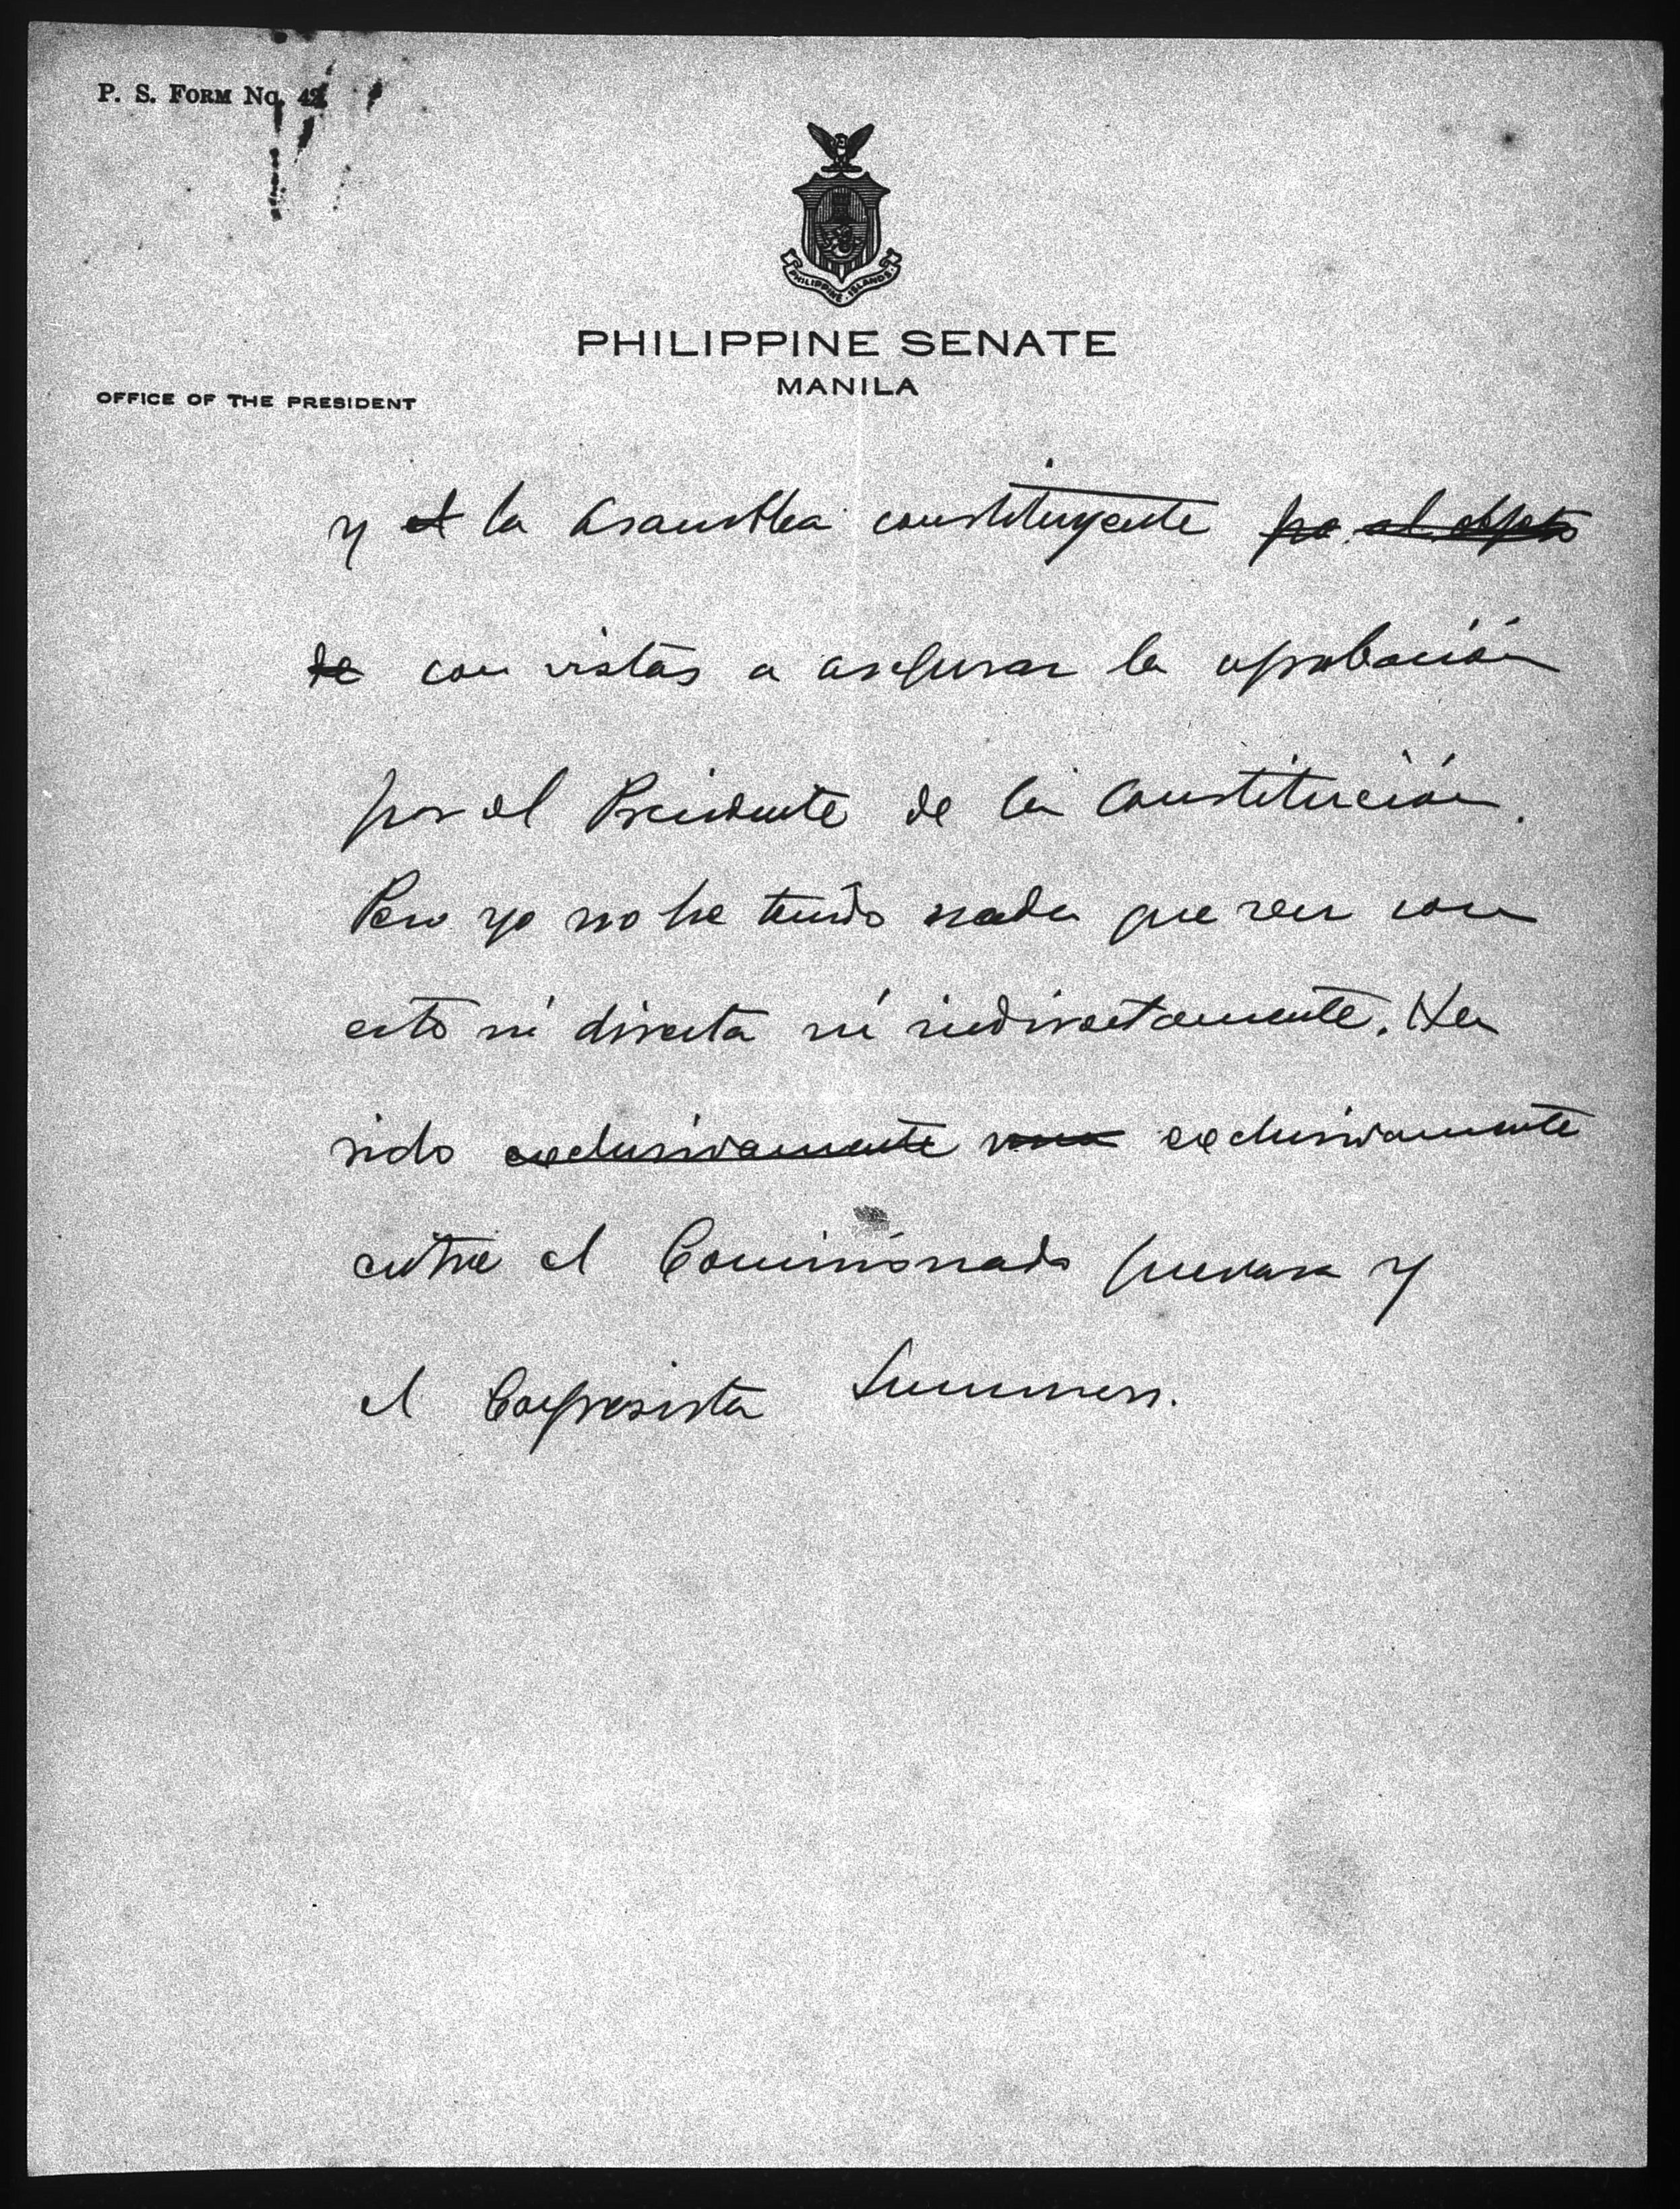 P. S. FORM No. 42
PHILIPPINE ISLANDS
PHILIPPINE SENATE
MANILA
OFFICE OF THE PRESIDENT
y el la Asamblea constituyente pa. el objeto
de con vistas a asegurar la aprobación
por el Presidente de la Constitución.
Pero yo no he tenido nada que ver con
esto ni directa ni indirectamente. Ha
sido exclusivamente exclusivamente
entre el Comisionado Guevara y
el Congresista Summers.